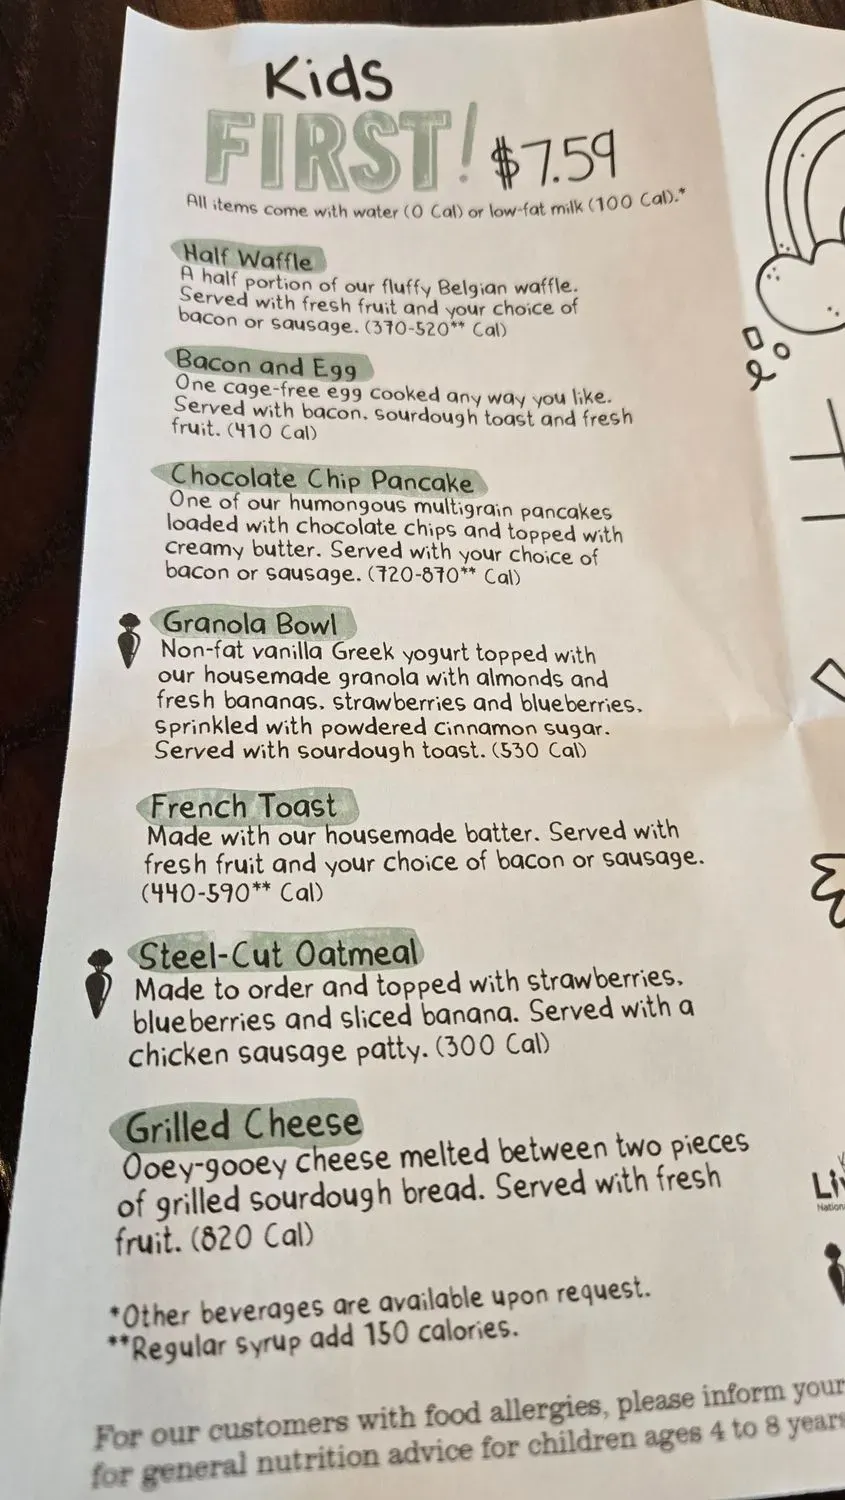 Kids
FIRST! $7.59
All items come with water (0 Cal) or low-fat milk (100 Cal).*
Half Waffle
A half portion of our fluffy Belgian waffle.
Served with fresh fruit and your choice of
bacon or sausage. (370-520** Cal)
Bacon and Egg
One cage-free egg cooked any way you like.
Served with bacon, sourdough toast and fresh
fruit. (410 Cal)
Chocolate Chip Pancake
One of our humongous multigrain pancakes
loaded with chocolate chips and topped with
creamy butter. Served with your choice of
bacon or sausage. (720-870** Cal)
Granola Bowl
Non-fat vanilla Greek yogurt topped with
our housemade granola with almonds and
fresh bananas, strawberries and blueberries,
sprinkled with powdered cinnamon sugar.
Served with sourdough toast. (530 Cal)
French Toast
Made with our housemade batter. Served with
fresh fruit and your choice of bacon or sausage.
(440-590** Cal)
Steel-Cut Oatmeal
Made to order and topped with strawberries,
blueberries and sliced banana. Served with a
chicken sausage patty. (300 Cal)
Grilled Cheese
Ooey-gooey cheese melted between two pieces
of grilled sourdough bread. Served with fresh
fruit. (820 Cal)
*Other beverages are available upon request.
**Regular syrup add 150 calories.
For our customers with food allergies, please inform your
for general nutrition advice for children ages 4 to 8 years